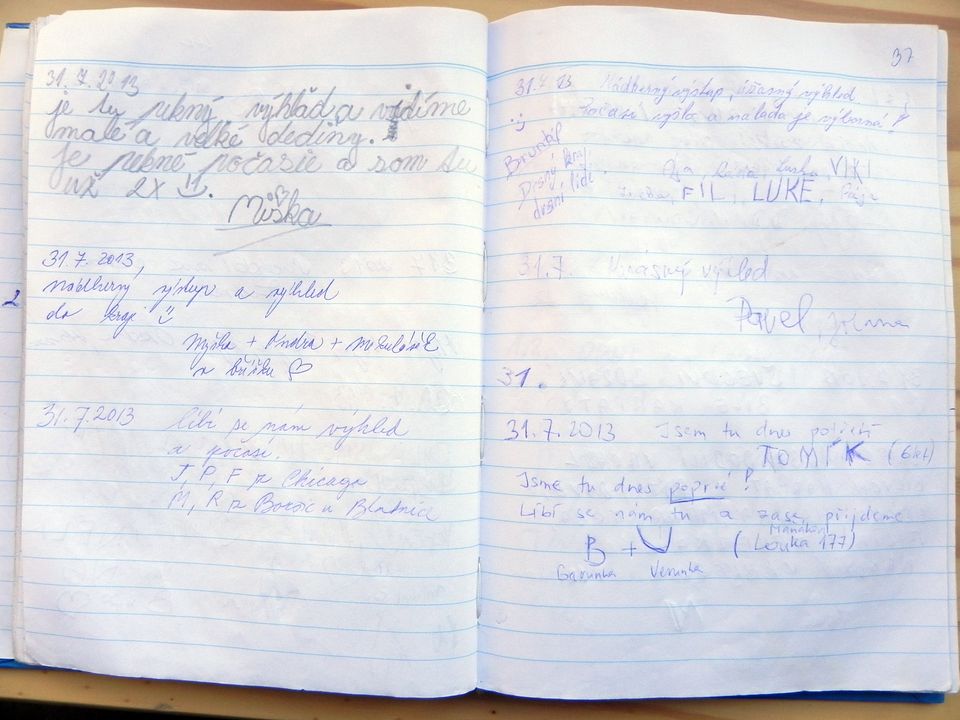 31.7.2013
je tu pekný výhlad a vidíme
malé a velké dediny.
je pekné počasie a som tu
už 2x
Miška
31.7.2013,
nádherný výstup a výhled
do kraje
Myška + Ondra + Mikulášek
v bříšku
31.7.2013 líbí se nám výhled
a počasí.
J, P, F z Chicaga
M, R z Boršic u Blatnice
37
31.7.13 Nádherný výstup, úžasný výhled.
Počasí vyšlo a nálada je výborná!
Bruntál
Drsný kraj
drsní lidé
VIKI
FIL, LUKE,
31.7. výhled
Pavel,
31.
31.7.2013 Jsem tu dnes
TOMÍK (6let)
Jsme tu dnes poprvé!
Líbí se nám tu a zase přijdeme.
B + V (Louka 177)
Verunka